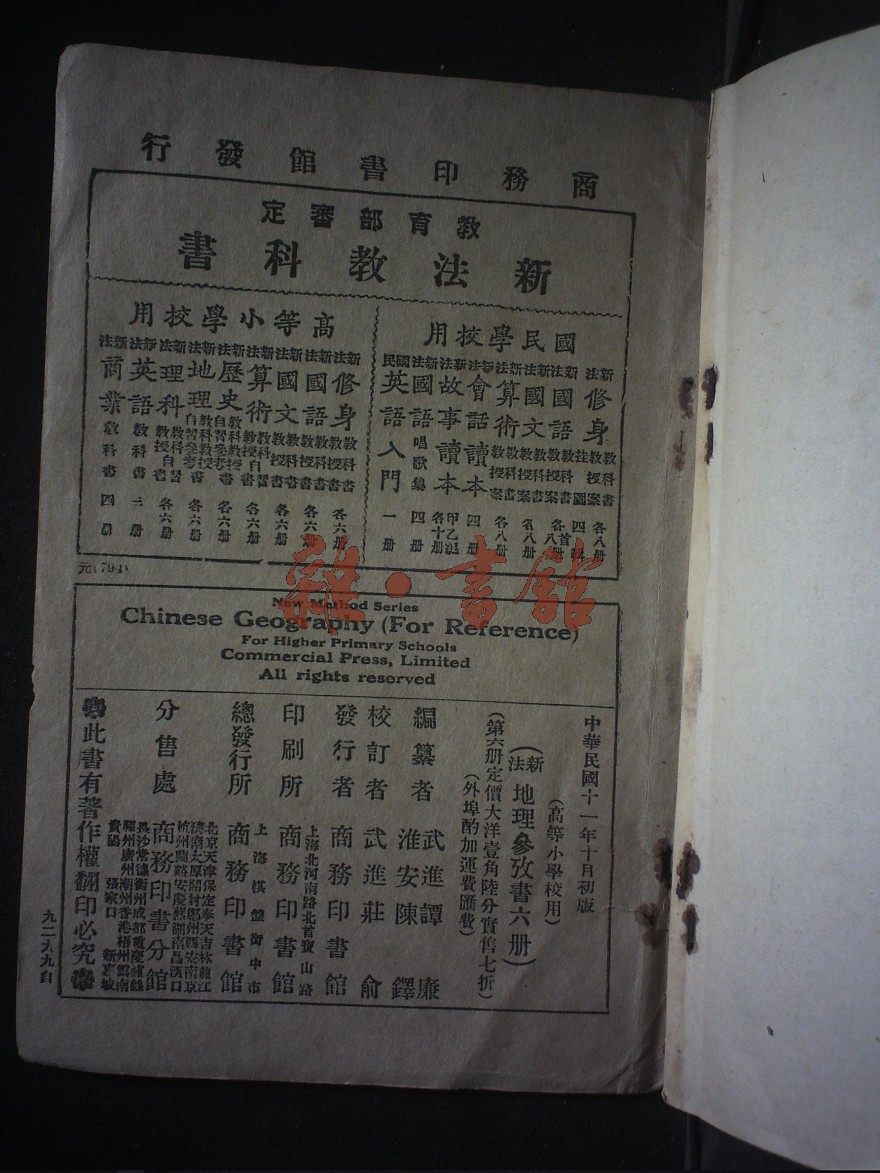 商務印書館發行
教育部審定
新法教科書
國民學校用
新法修身教科書教授案各八册
新法國語教科書教授案各八册
新法國文教科書教授案各八册
新法算術教科書教授案各八册
新法會話讀本四册
新法故事讀本各十册
新法國語唱歌集四册
國民英語入門一册
高等小學校用
新法修身教科書教授書各六册
新法國語教科書教授書各六册
新法國文教科書教授書各六册
新法算術教科書教授書自習書各六册
新法歷史教科書教授書自習書參考書各六册
新法地理教科書教授書自習書參考書各六册
新法理科教科書教授書自習書各六册
新法英語教科書三册
新法商業教科書四册
元(794)
雜·書館
New Method Series
Chinese Geography (For Reference)
For Higher Primary Schools
Commercial Press, Limited
All rights reserved
中華民國十一年十月初版
(高等小學校用)
(新法地理參攷書六册)
(第六册定價大洋壹角陸分實售七折)
(外埠酌加運費匯費)
編纂者 武進譚廉
淮安陳鐸
校訂者 武進莊俞
發行者 商務印書館
印刷所 上海北河南路北首寶山路
商務印書館
總發行所 上海棋盤街中市
商務印書館
分售處 北京天津保定奉天吉林龍江
濟南太原開封鄭州西安南京
杭州蘭谿安慶蕪湖南昌漢口
商務印書分館
長沙常德衡州成都重慶瀘縣
福州廣州潮州香港梧州雲南
貴陽 張家口 新嘉坡
此書有著作權翻印必究
九二九九自